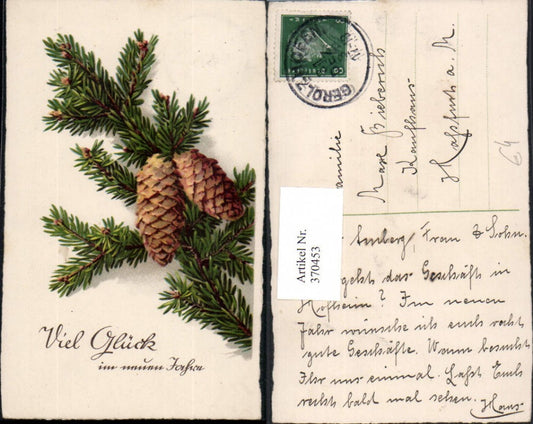 Viel Glück
im neuen Jahre
DEUTSCHES
GEROLZ
Familie
Max Bieberich
Kaufhaus
Haßfurt a. M.
64
Artikel Nr.
370453
Amberg, Frau & Sohn.
geht das Geschäft in
Hofheim? Im neuen
Jahr wünsche ich euch recht
gute Geschäfte. Wann besucht
Ihr uns einmal. Laßt Euch
recht bald mal sehen.
Hans